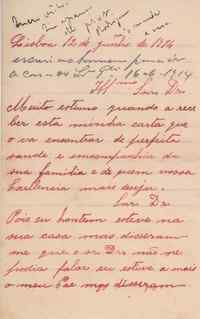 Lisboa 12 de junho de 1914
16-6-1914
Illmo Snr. Dr.
Muito estimo quando a rece
ber esta minha carta que
o vá encontrar de perfeita
saude e em companhia da
sua familia e de quem vossa
Excelencia mais deseja.
Snr. Dr.
Pois eu hontem estive na
sua casa mas disseram
me que o sr Dr não me
podia falar eu estive a mais
o meu Pae mas disseram